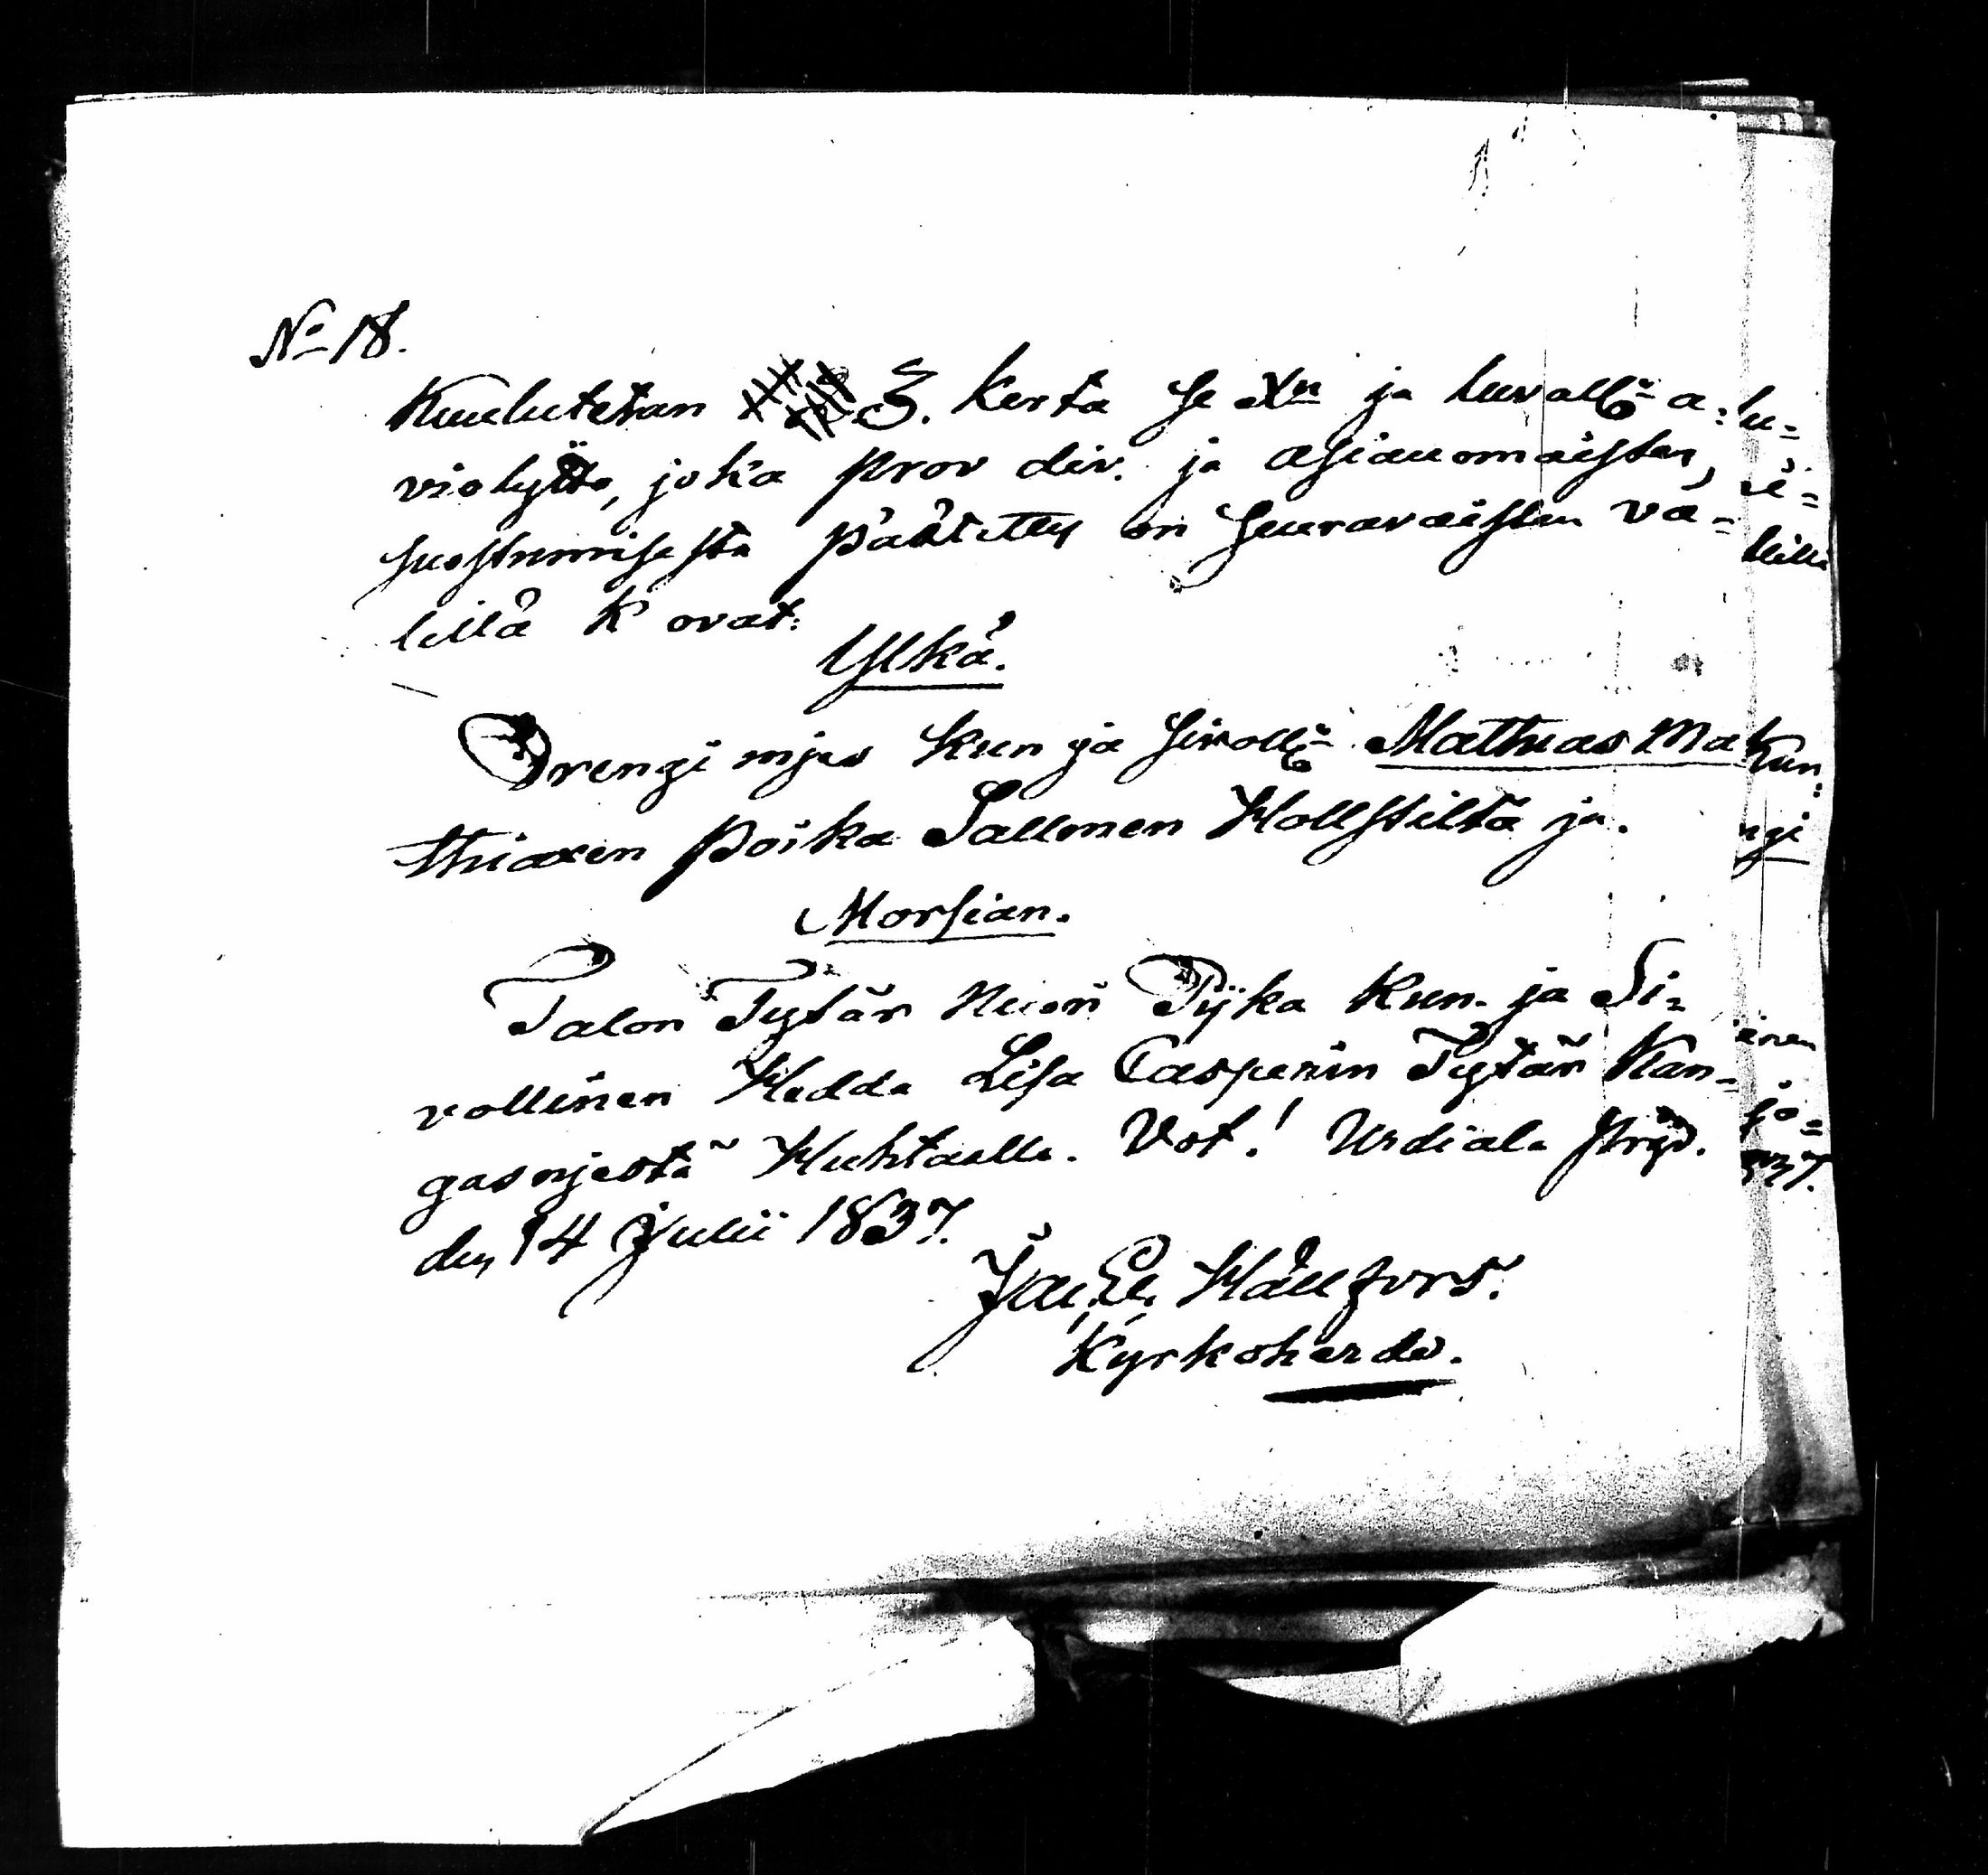 No 18.
Kuulutetan 3. Kerta se Xn ja luvall: a:
violijtto, joka prov div. ja asianomaisten,
suostumisesta päätetty on seuravaisten vä-
lillä K ovat:
Ylkä.
Drengi mjes Kun ja sivoll: Mathias Mat
thiaxen poika Sallmen Hollstiltä ja.
Morsian.
Talon Tytär Nuori Pijka Kun- ja Si-
vollinen Hedda Lisa Casperin Tytär Kan-
gasnjestä Huhtaalla. Vot! Urdiala Prgd.
den 14 Julii 1837.
Jac. Hällfors.
Kyrkoherde.
lu-
lillä
Kun
ngi
inen
jö-
837.